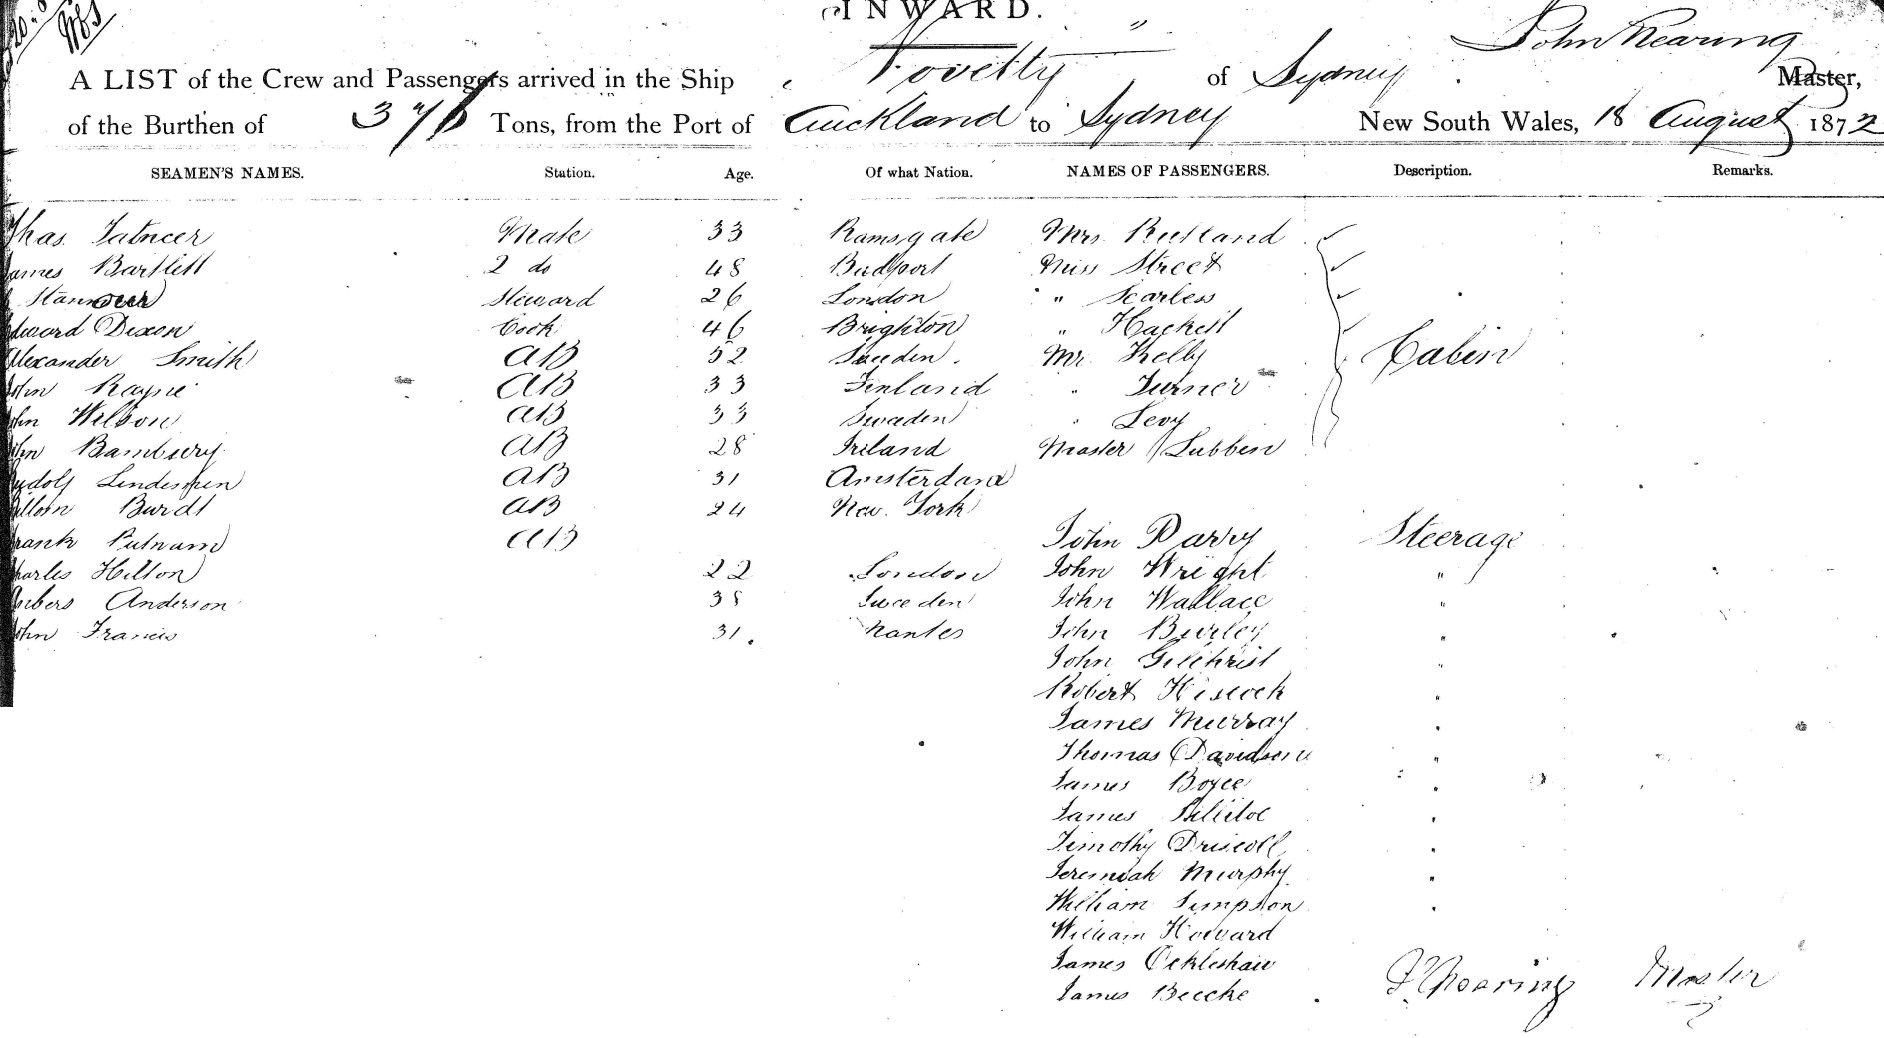 INWARD.
A LIST of the Crew and Passengers arrived in the Ship Novelty of Sydney John Nearing Master,
of the Burthen of 376 Tons, from the Port of Auckland to Sydney New South Wales, 18 August 1872
SEAMEN'S NAMES. Station. Age. Of what Nation. NAMES OF PASSENGERS. Description. Remarks.
Thas. Mate 33 Ramsgate Mrs. Rutland
ames Bartlett 2 do 48 Bridport Miss Street
Steward 26 London " Scarless
dward Dixon Cook 46 Brighton " Hackett
Alexander Smith AB 52 Sweden. Mr. Kelly Cabin
John Rayne AB 33 Finland " Turner
ohn Wilson AB 33 Sweden " Levy
ohn Bambury AB 28 Ireland Master Lubben
udolf AB 31 Amsterdam
Burdt AB 24 New York
rank Putnam AB John Parry Steerage
harles Hilton 22 London John Wright "
Anderson 38 Sweden John Wallace "
ohn Francis 31. Nantes John Burley "
John Gilchrist "
Robert Hiscock "
James Murray "
Thomas Davidson "
James Boyce "
James "
Timothy Driscoll "
Jeremiah Murphy "
William Simpson "
William Howard
James Ockleshaw
James Beecke J. Nearing Master